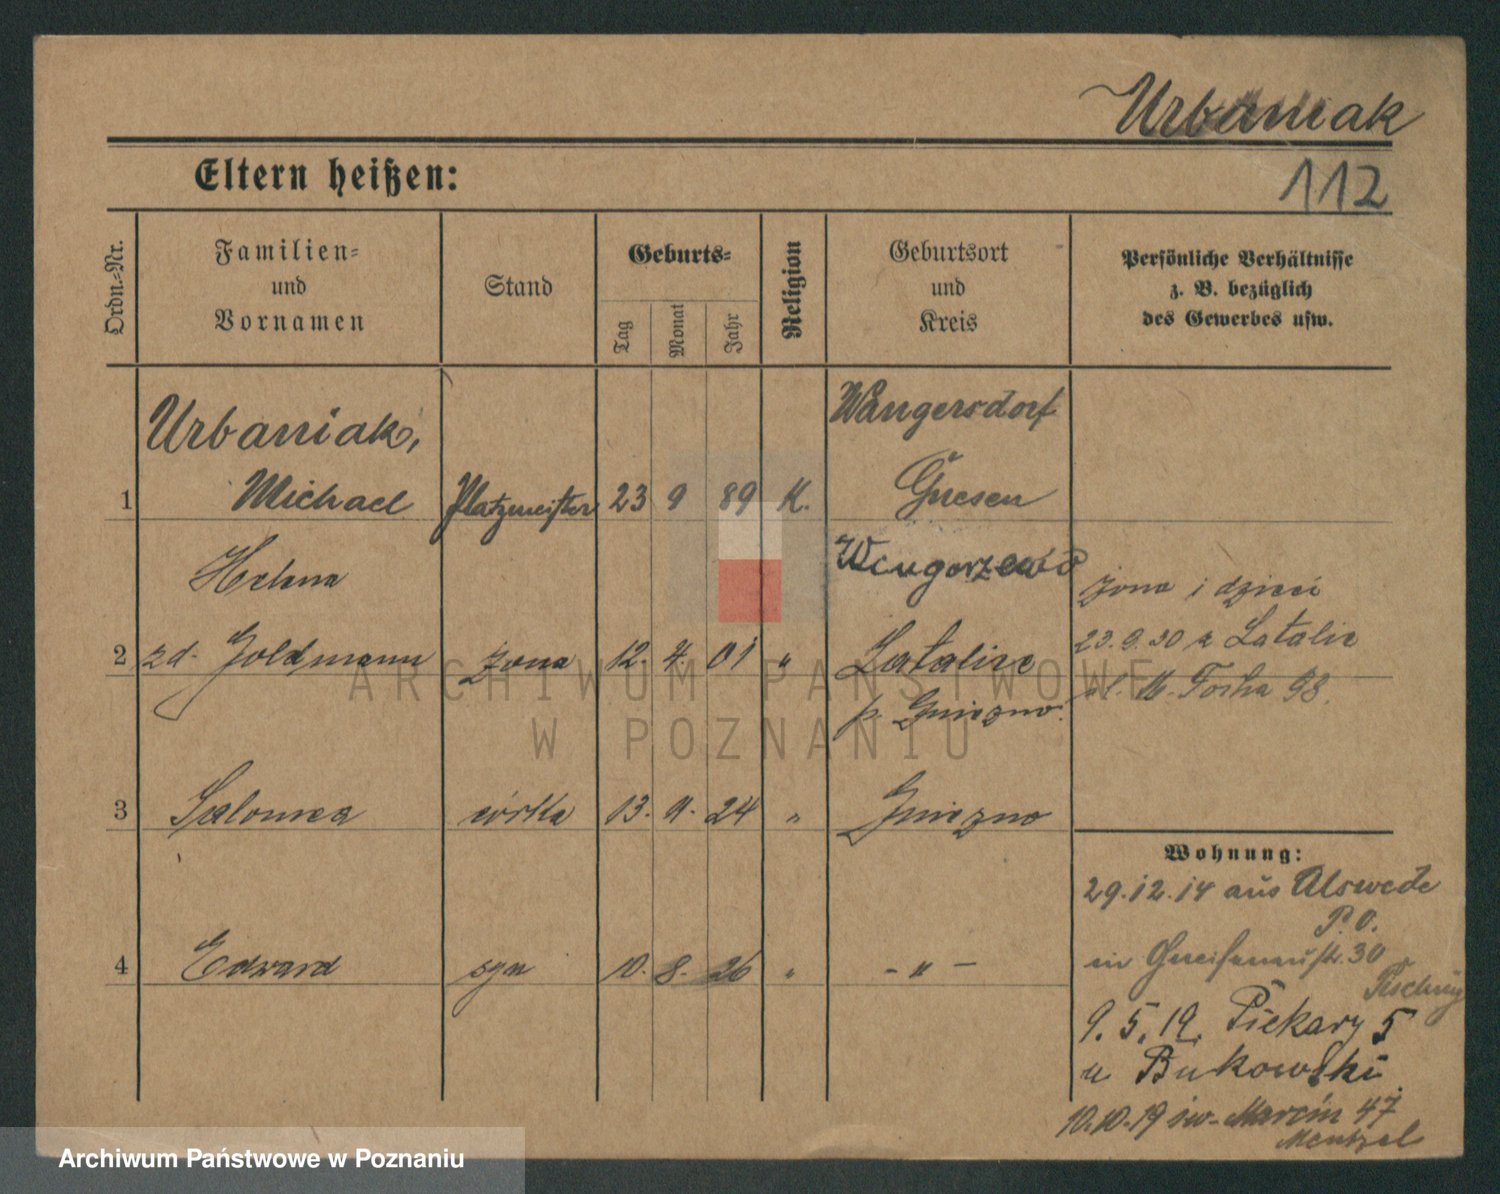 Urbaniak
Eltern heißen:
112
Ordn.-Nr.
Familien-
und
Vornamen
Stand
Geburts-
Tag
Monat
Jahr
Religion
Geburtsort
und
Kreis
Persönliche Verhältnisse
z. B. bezüglich
des Gewerbes usw.
Urbaniak,
Wängersdorf
1 Michael Platzmeister 23 9 89 K. Gnesen
Helena
Wengorzewo
żona i dzieci
2 zd. Goldmann żona 12. 4. 01 " Latalice
23.9.30 z Latalic
p. Gniezno.
ul. M. Focha 98.
3 Salomea córka 13. 11. 24 " Gniezno
Wohnung:
29.12.14 aus Alswede
P.O.
4 Edward syn 10. 8. 26 " - " -
in Gneisenaustr. 30
9.5.19. Piekary 5
u Bukowski
10.10.19 św. Marcin 47
Mentzel
ARCHIWUM PAŃSTWOWE
W POZNANIU
Archiwum Państwowe w Poznaniu